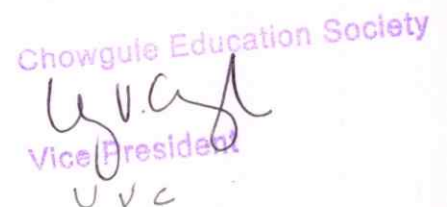 Chowgule Education Society
Vice President
VVC